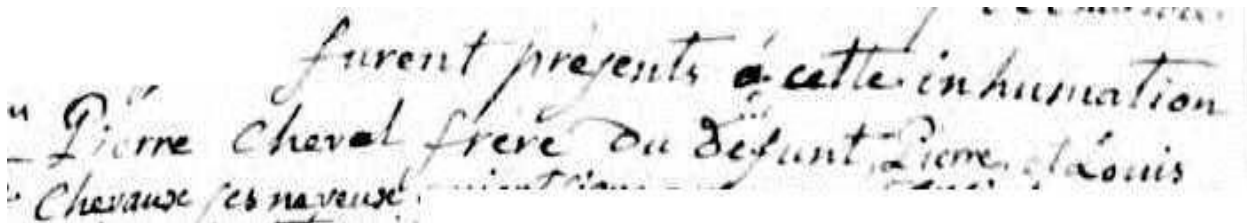 furent présents à cette inhumation
Pierre Cheval frère du défunt, Pierre et Louis
Chevaux ses neveux